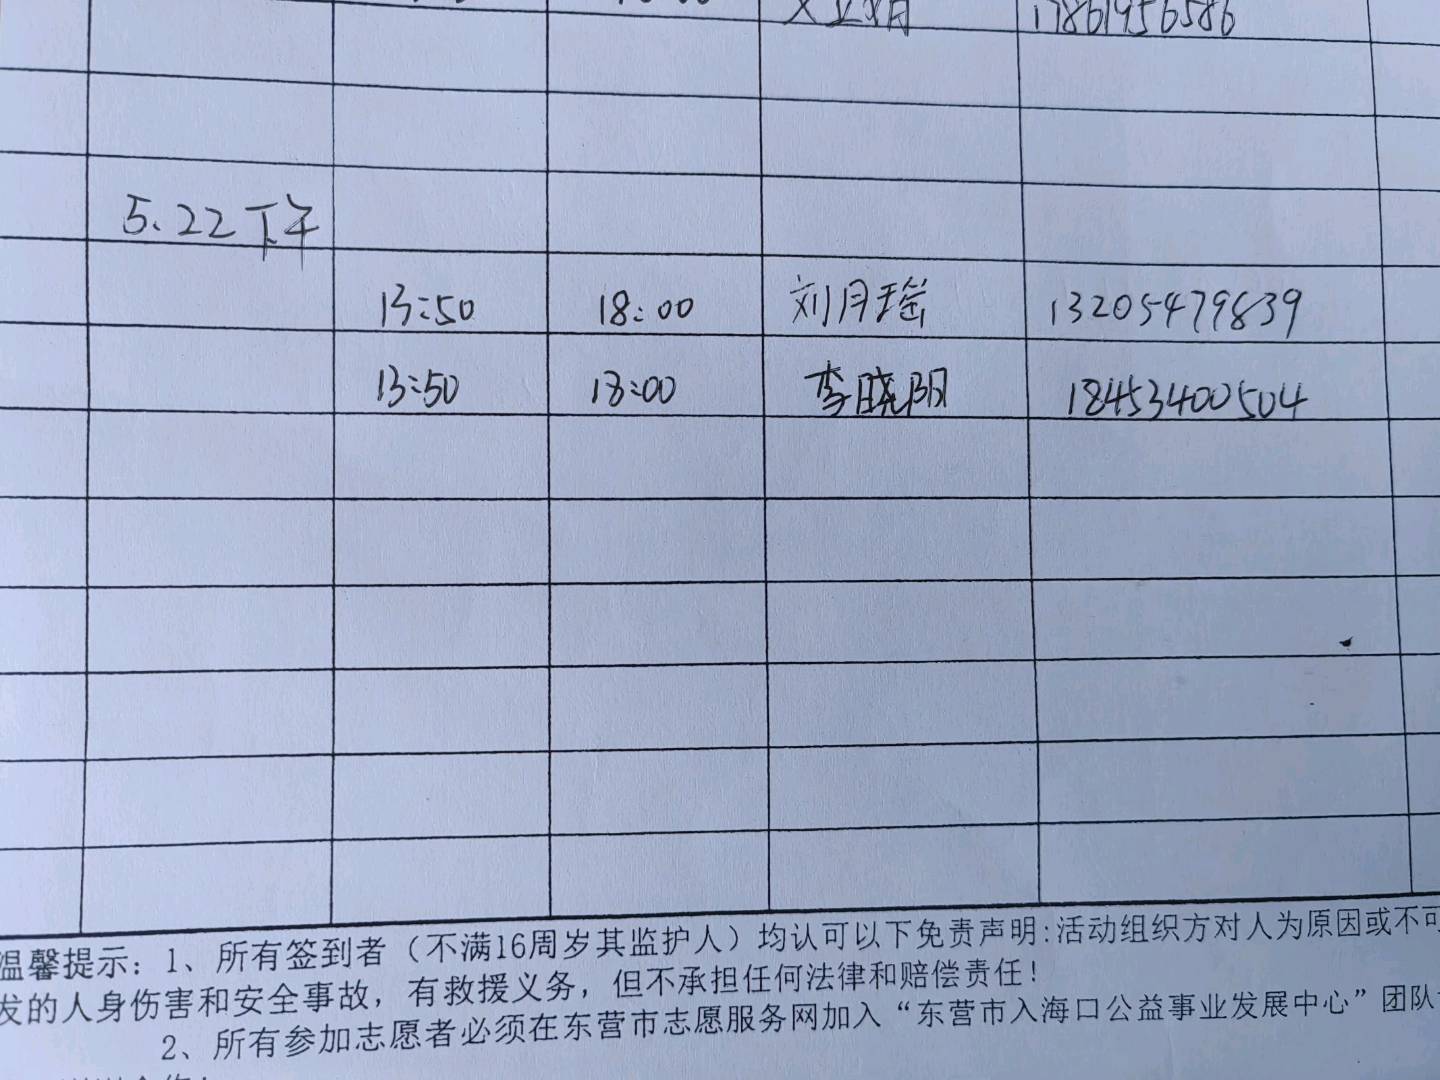 17861956586
5.22下午
13:50 18:00 刘月瑶 13205479839
13:50 18:00 李晓阳 18453400504
温馨提示：1、所有签到者（不满16周岁其监护人）均认可以下免责声明:活动组织方对人为原因或不可
发的人身伤害和安全事故，有救援义务，但不承担任何法律和赔偿责任！
2、所有参加志愿者必须在东营市志愿服务网加入“东营市入海口公益事业发展中心”团队